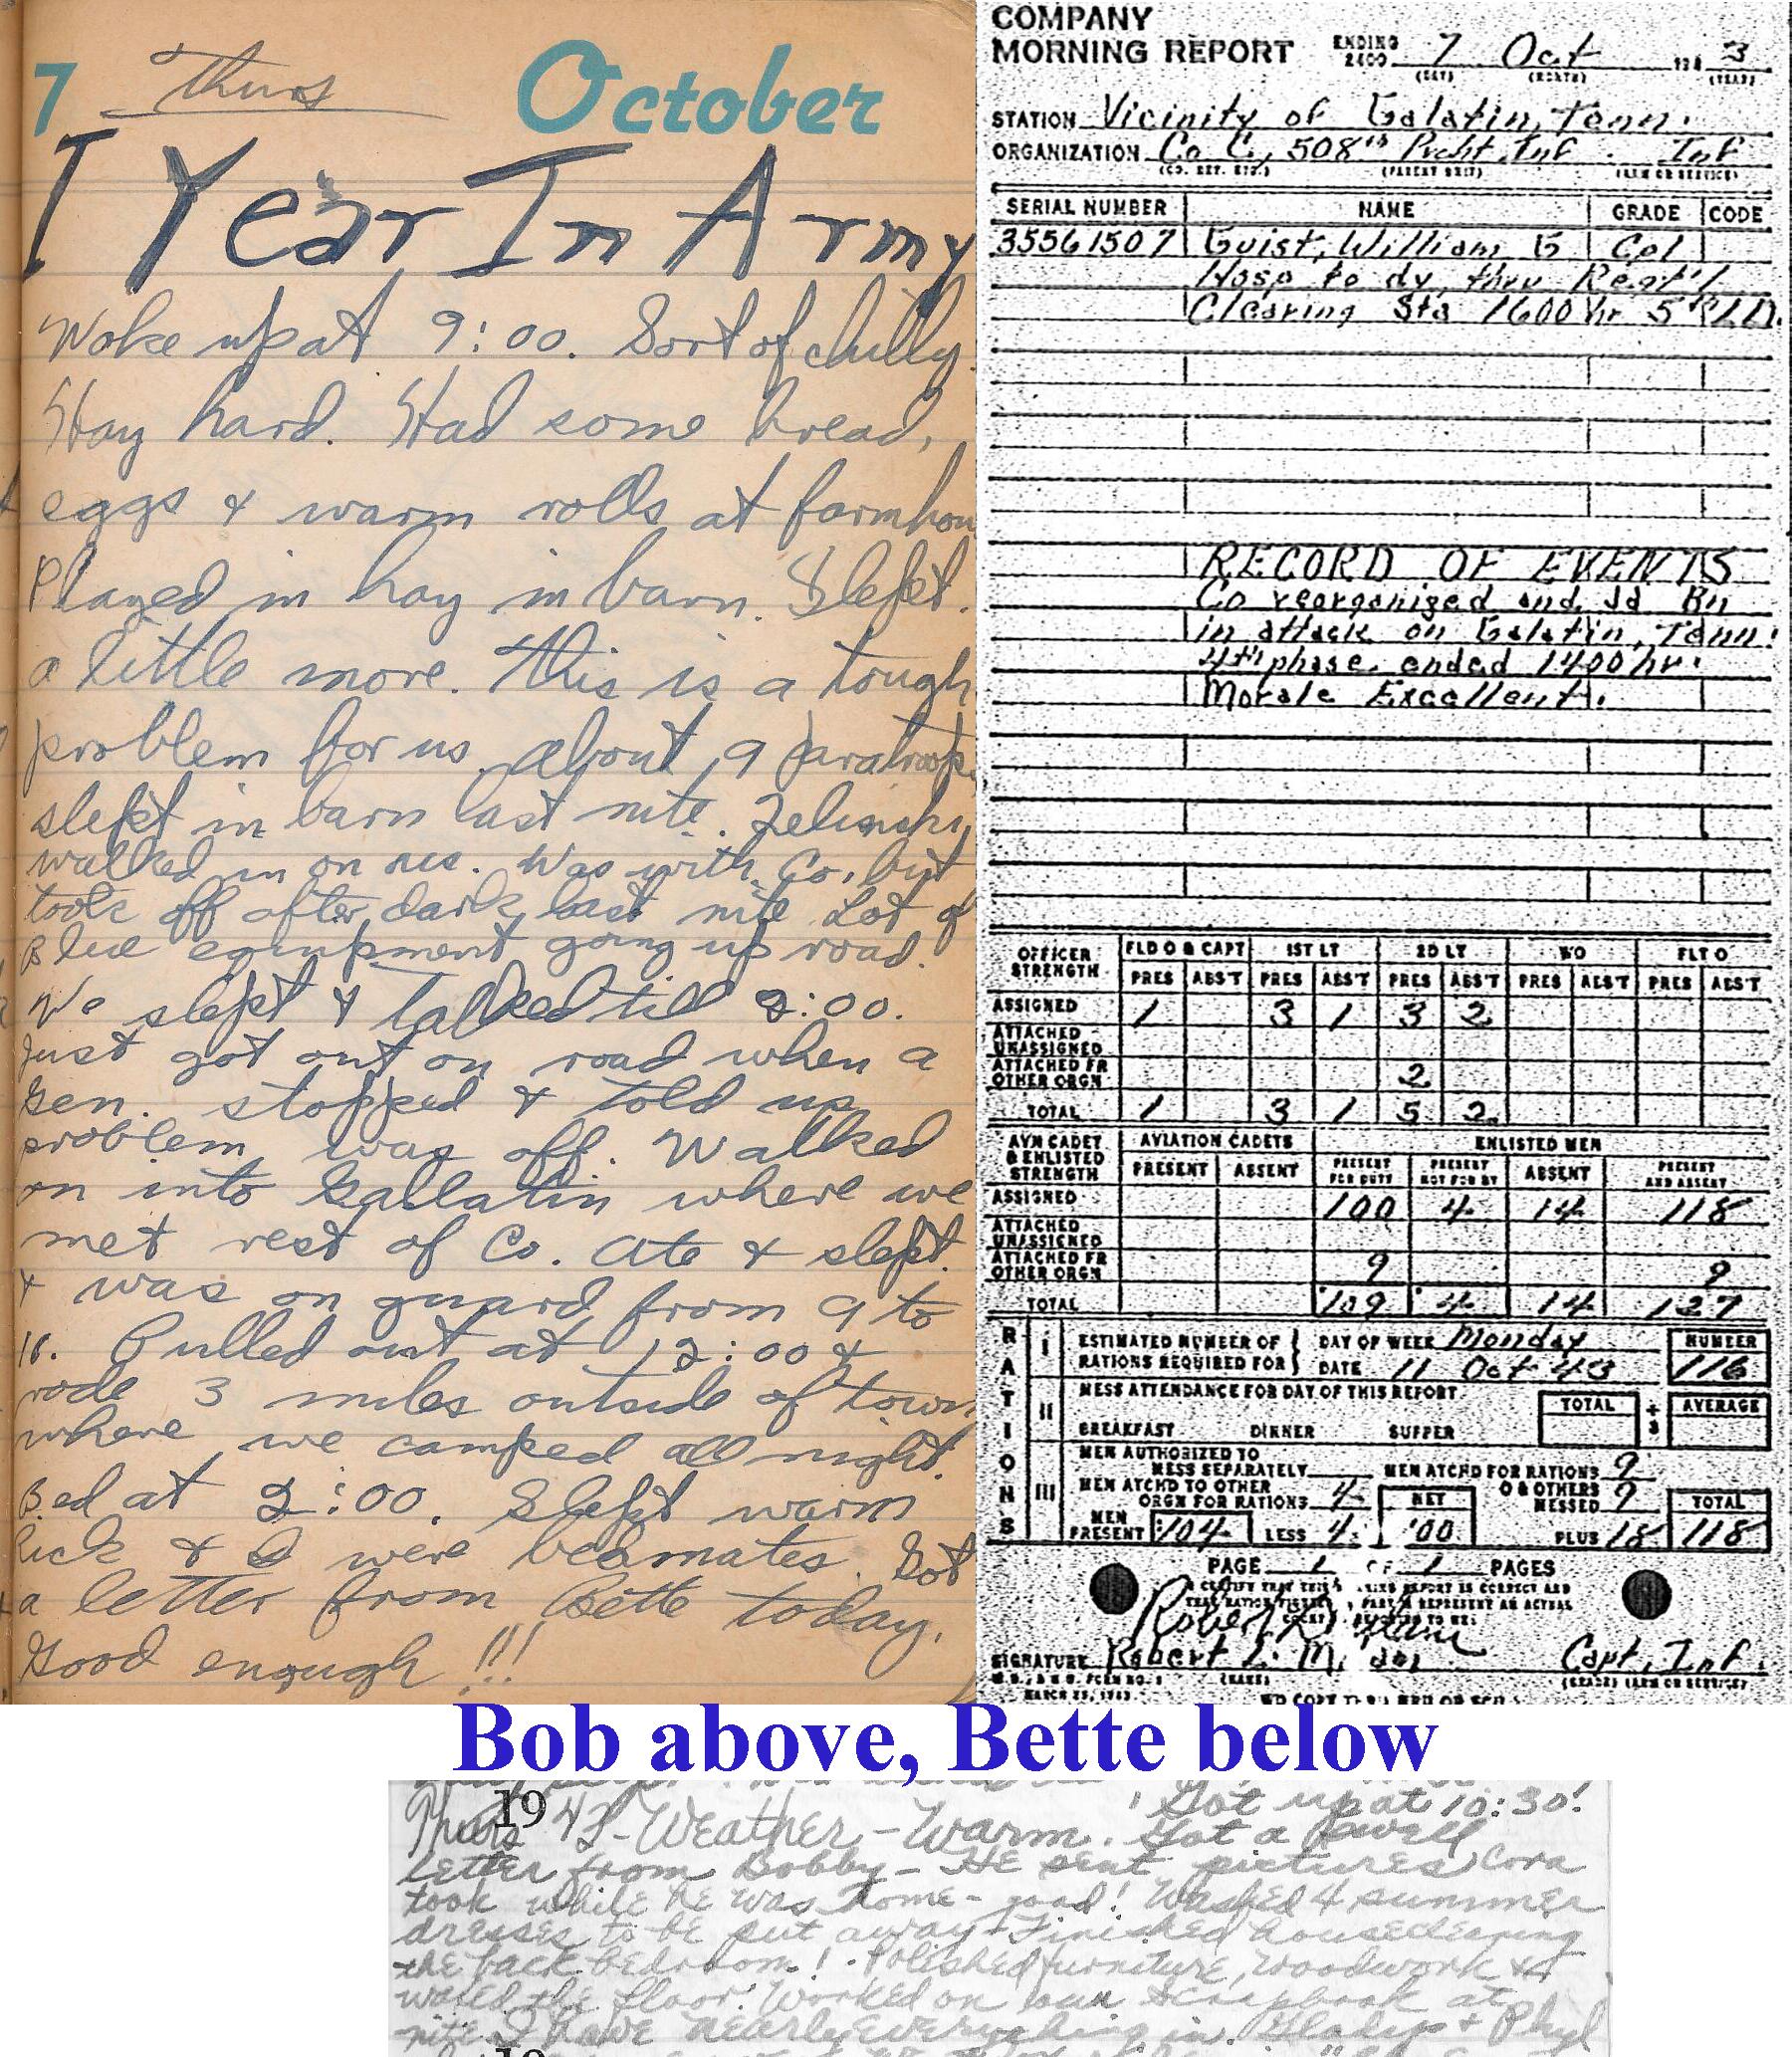 7 Thurs October
1 Year In Army
Woke up at 9:00. Sort of chilly.
Hay hard. Had some bread,
eggs & warm rolls at farmhou
Played in hay in barn. Slept
a little more. This is a tough
problem for us. About 9 paratroop
slept in barn last nite.
walked in on us. Was with Co. but
took off after dark last nite. Lot of
Blue equipment going up road.
We slept & talked till 2:00.
Just got out on road when a
Gen. stopped & told us
problem was off. Walked
on into Gallatin where we
met rest of Co. Ate & slept.
& was on guard from 9 to
10. Pulled out at 12:00 &
rode 3 miles outside of town
where we camped all night.
Bed at 2:00. Slept warm
& I were bedmates. Got
a letter from Bette today.
Good enough!!!
COMPANY
MORNING REPORT ENDING 2400 7 Oct 194 3
(DAY) (MONTH) (YEAR)
STATION Vicinity of Galatin, Tenn.
ORGANIZATION Co C, 508th Prcht Inf. Inf
(PARENT UNIT) (ARM OR SERVICE)
SERIAL NUMBER NAME GRADE CODE
35561507 Guist, William G Cpl
Hosp to dy thru Regt'l
Clearing Sta 1600 hr 5
RECORD OF EVENTS
Co reorganized and Jd Bn
in attack on Galatin, Tenn.
4th phase ended 1400 hr.
Morale Excellent.
OFFICER STRENGTH FLD O & CAPT 1ST LT 2D LT WO FLT O
PRES ABS'T PRES ABS'T PRES ABS'T PRES ABS'T PRES ABS'T
ASSIGNED 1 3 1 3 2
ATTACHED UNASSIGNED
ATTACHED FR OTHER ORGN 2
TOTAL 1 3 1 5 2
AVN CADET & ENLISTED STRENGTH AVIATION CADETS ENLISTED MEN
PRESENT ABSENT PRESENT FOR DUTY PRESENT NOT FOR DY ABSENT PRESENT AND ABSENT
ASSIGNED 100 4 14 118
ATTACHED UNASSIGNED
ATTACHED FR OTHER ORGN 9 9
TOTAL 109 4 14 127
RATIONS
I ESTIMATED NUMBER OF RATIONS REQUIRED FOR DAY OF WEEK Monday NUMBER
DATE 11 Oct 43 116
II MESS ATTENDANCE FOR DAY OF THIS REPORT TOTAL ÷ 3 AVERAGE
BREAKFAST DINNER SUPPER
III MEN AUTHORIZED TO MESS SEPARATELY MEN ATCHD FOR RATIONS 9
MEN ATCHD TO OTHER ORGN FOR RATIONS 4 NET O & OTHERS MESSED 9 TOTAL
MEN PRESENT 104 LESS 4 100 PLUS 18 118
PAGE 1 OF 1 PAGES
SIGNATURE Robert L. Capt. Inf.
Bob above, Bette below
Got up at 10:30!
Thurs 1943 - Weather - Warm. Got a swell
letter from Bobby - He sent pictures Cora
took while he was home - good! Washed 4 summer
dresses to be put away. Finished housecleaning
the back bedroom! Polished furniture, woodwork &
waxed the floor. Worked on scrapbook at
nite. I have nearly everything in. Gladys & Phyl